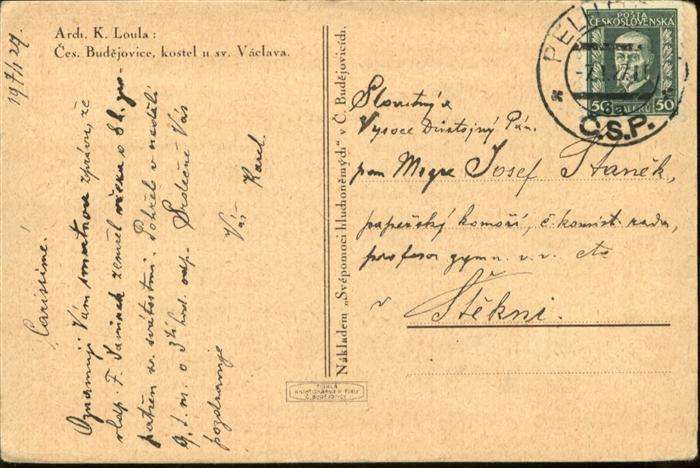 Arch. K. Loula:
Čes. Budějovice, kostel u sv. Václava.
19 7/1 27.
Carissime!
Oznamuji Vám smutnou zprávu, že
vldp. F. zemřel včera o 8 h.
zaopatřen sv. svátostmi. Pohřeb v neděli
9. t. m. o 3 hod. odp. Srdečně Vás
pozdravuje
Váš Karel
Nákladem „Svépomoci hluchoněmých" v Č. Budějovicích.
PELH
-7.I.27.11
Č.S.P.
POŠTA
ČESKOSLOVENSKÁ
50 HALÉŘŮ 50
Slovutný a
Vysoce Důstojný Pán,
pan Msgre Josef Staněk,
papežský komoří, č. konsist. rada,
profesor gymn. v. v. etc
v Štěkni.
Č. BUDĚJOVICE